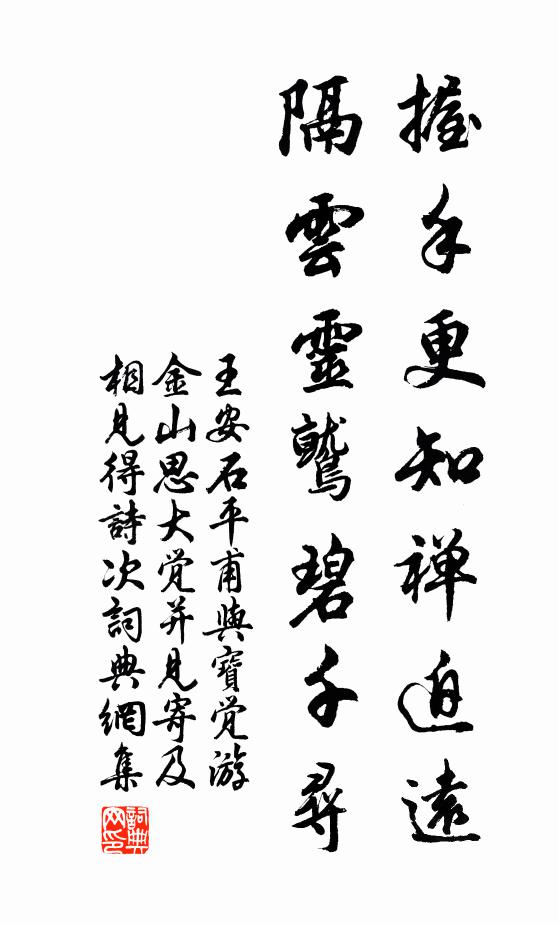 握手更知禅迫遠
隔雲靈鷲碧千尋
王安石平甫與寶觉游
金山思大觉并見寄及
相見得詩次詞典網集
詞典网印